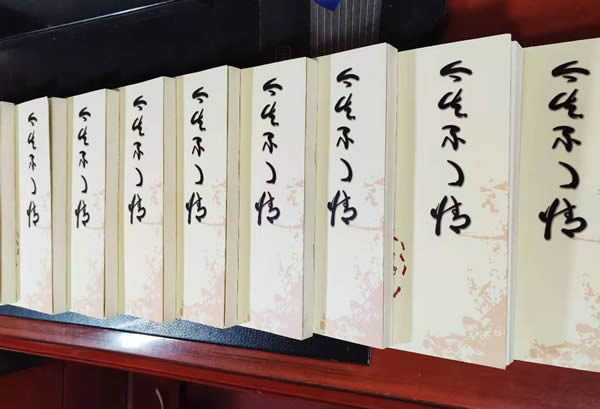 今生不了情
今生不了情
今生不了情
今生不了情
今生不了情
今生不了情
今生不了情
今生不了情